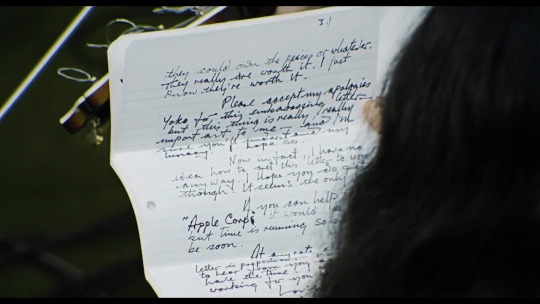 3)
they could own the pieces or whatever.
They really are worth it. I just
know they're worth it.
Please accept my apologies
Yoko for this embarrassing letter
but this thing is really, really
important to me and I'm
sure you'll understand my
I hope so.
Now in fact I have no
idea how to get this letter to you
anyway. I hope you do get it
though. It seems the only
If you can help
"Apple Corps" it would
isn't time is running so
be soon.
At any rate
letter is
to hear from you
have the time
working for you